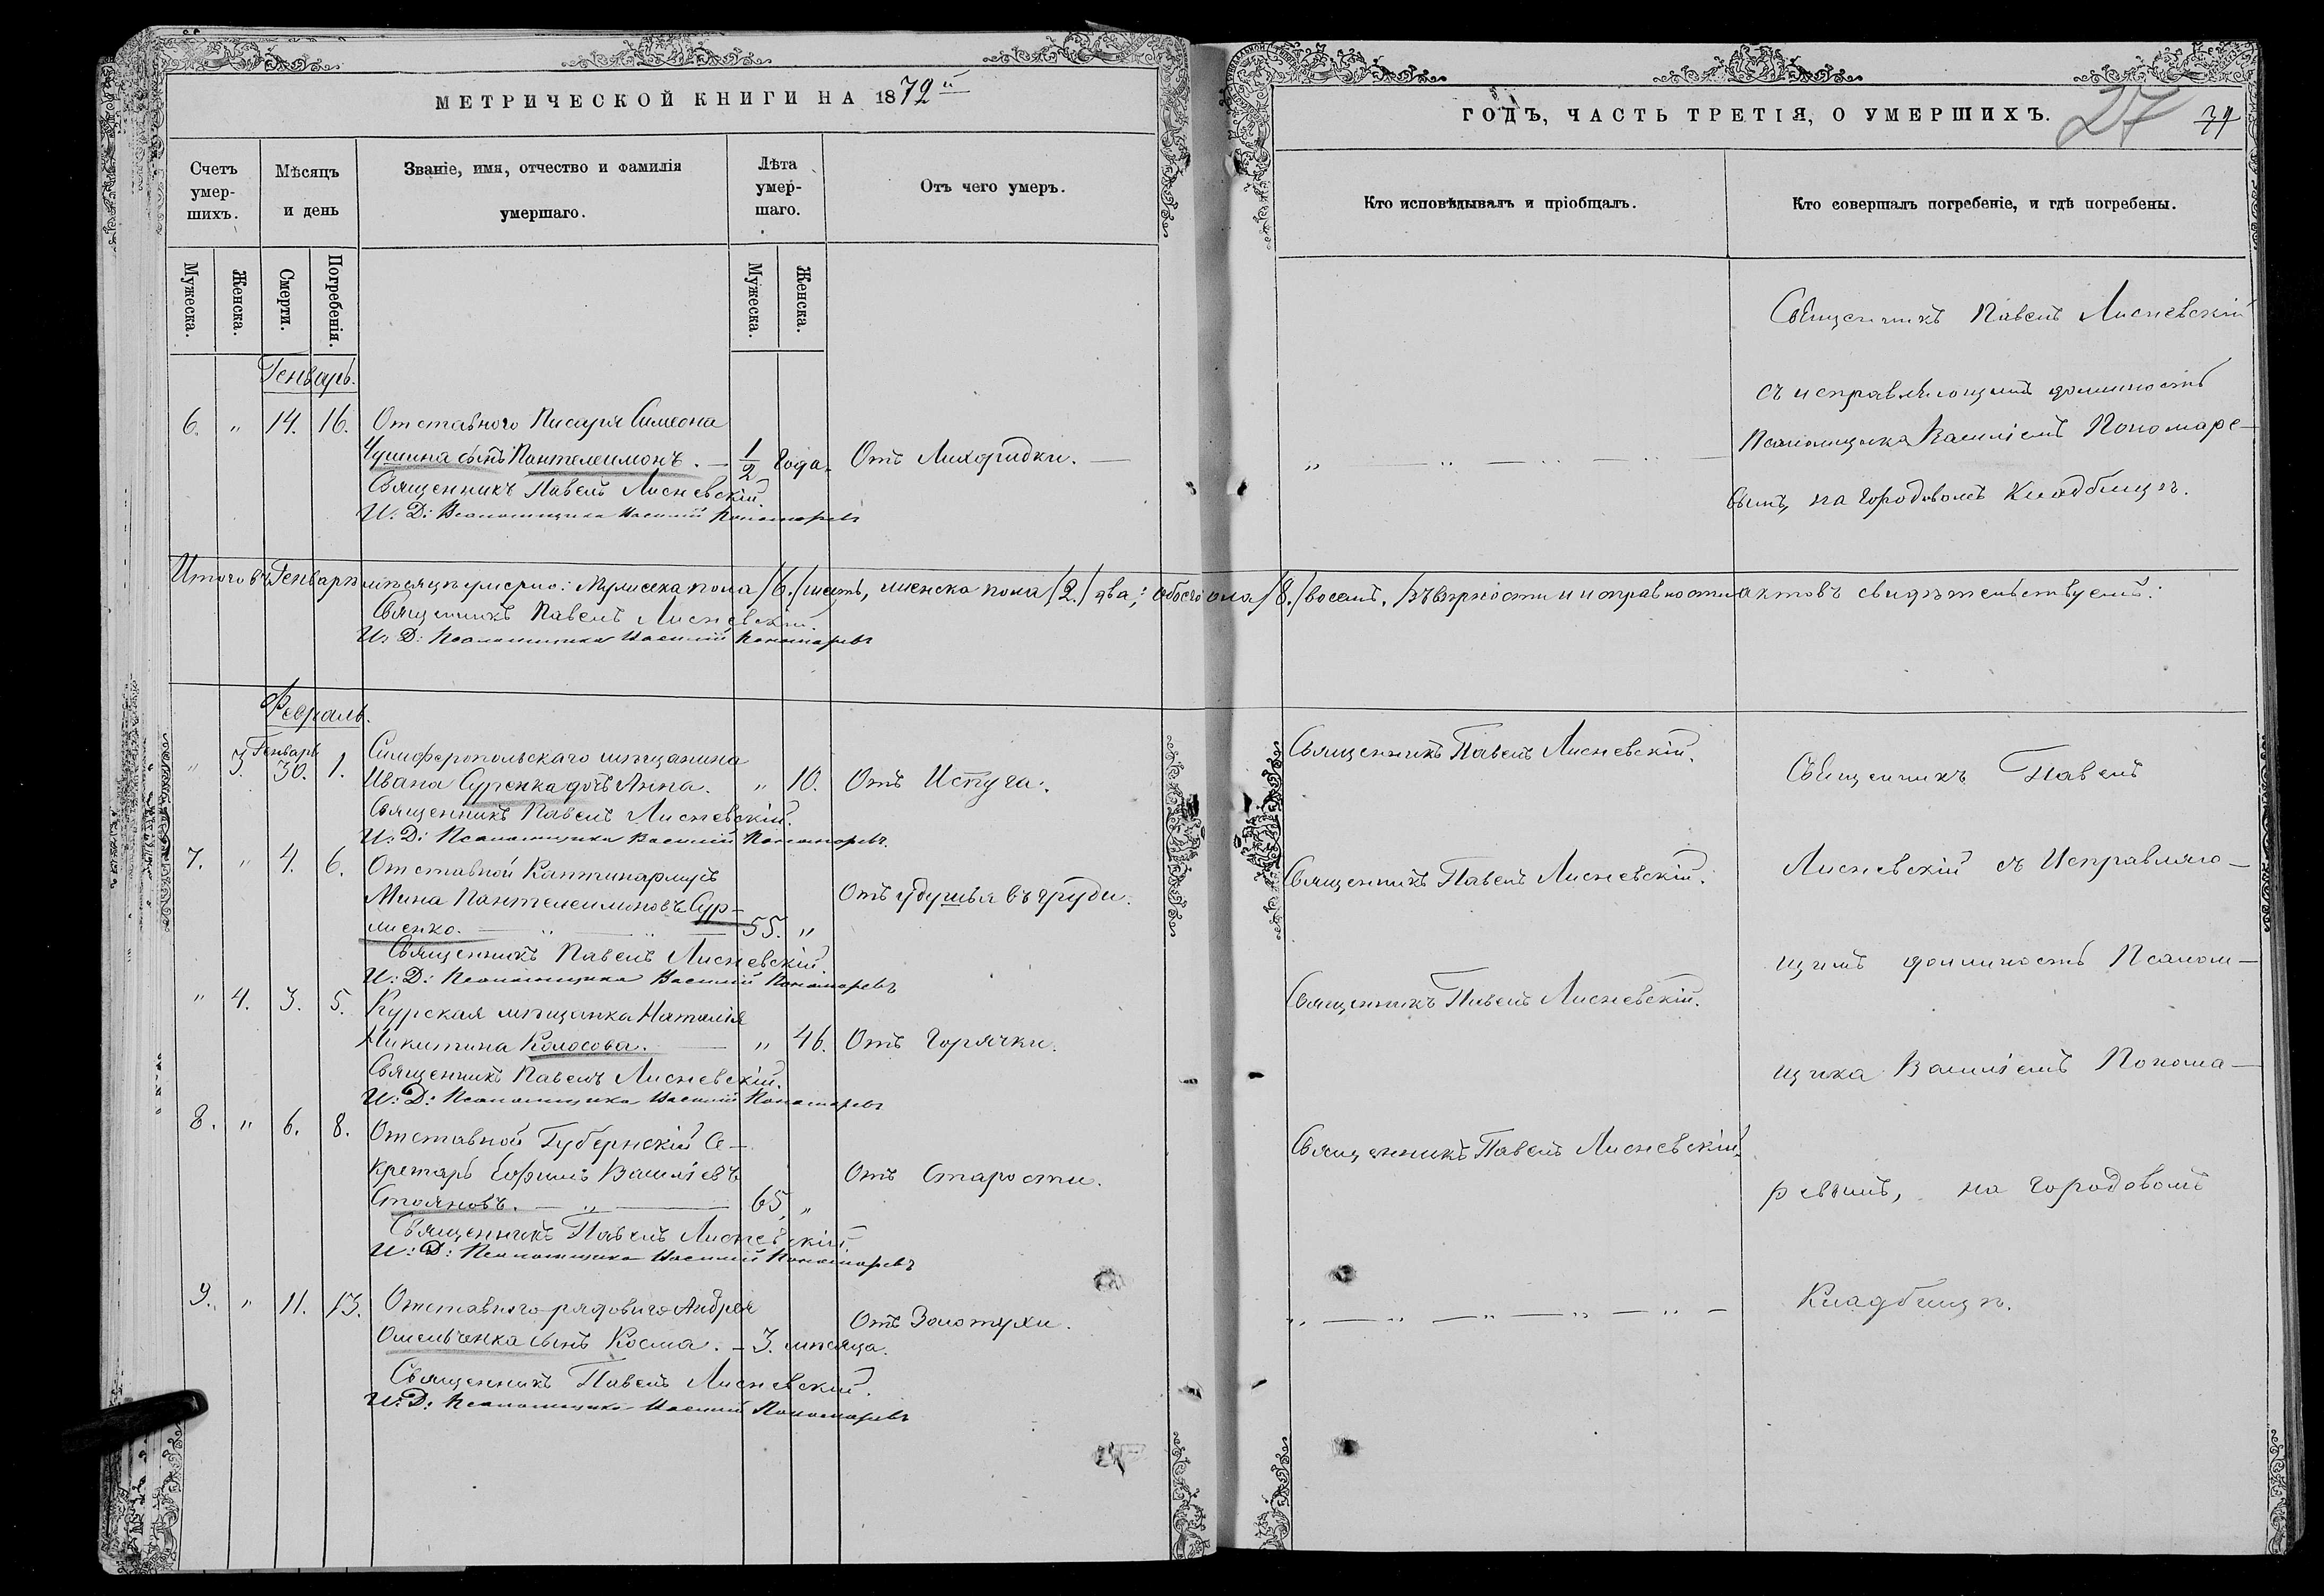 МЕТРИЧЕСКОЙ КНИГИ НА 1872й
Счетъ умер-шихъ.
Мѣсяцъ и день
Званіе, имя, отчество и фамилія умершаго.
Лѣта умер-шаго.
Отъ чего умеръ.
Мужеска.
Женска.
Смерти.
Погребенія.
Мужеска.
Женска.
Генварь.
6. " 14. 16. Отставного Писаря Симеона
сынъ Пантелеимонъ. — 1/2 года. Отъ Лихорадки. —
Священникъ Павелъ Лисневскій
И: Д: Псаломщика Василій Пономаревъ
Итого въ Генварѣ мѣсяцѣ умерло: Мужеска пола /6./ шесть, женска пола /2./ два; обоего пола /8./ восемь. /
Священникъ Павелъ Лисневскій.
И: Д: Псаломщика Василій Пономаревъ
Февраль.
" 3. Генварь 30. 1. Симферопольскаго мѣщанина
Ивана Суренка дочь Анна. " 10. Отъ Испуга.
Священникъ Павелъ Лисневскій.
И: Д: Псаломщика Василій Пономаревъ.
7. " 4. 6. Отставной Каптинармусъ
Мина Пантелеимоновъ Сур-
менко. — " — " — 55. " Отъ удушья въ груди.
Священникъ Павелъ Лисневскій.
И: Д: Псаломщика Василій Пономаревъ
" 4. 3. 5. Курская мѣщанка Наталія
Никитина Колосова. — " 46. Отъ Горячки.
Священникъ Павелъ Лисневскій.
И: Д: Псаломщика Василій Пономаревъ
8. " 6. 8. Отставной Губернскій Се-
кретарь Ефимъ Василіевъ
Стояновъ. — " — 65. " Отъ Старости.
Священникъ Павелъ Лисневскій.
И: Д: Псаломщика Василій Пономаревъ
9. " 11. 13. Отставного рядового Андрея
Омельченка сынъ Косма. — 3. мѣсяца. Отъ Золотухи.
Священникъ Павелъ Лисневскій.
И: Д: Псаломщика Василій Пономаревъ
ГОДЪ, ЧАСТЬ ТРЕТІЯ, О УМЕРШИХЪ.
27
Кто исповѣдывалъ и пріобщалъ.
Кто совершалъ погребеніе, и гдѣ погребены.
Священникъ Павелъ Лисневскій
съ исправляющимъ должность
Псаломщика Василіемъ Пономаре-
вымъ, на городовомъ Кладбищѣ.
" — " — " — " —
въ вѣрности и исправности актовъ свидѣтельствуемъ:
Священникъ Павелъ Лисневскій.
Священникъ Павелъ Лисневскій.
Священникъ Павелъ Лисневскій.
Священникъ Павелъ Лисневскій.
" — " — " — " — " —
Священникъ Павелъ
Лисневскій съ Исправляю-
щимъ должность Псалом-
щика Василіемъ Понома-
ревымъ, на городовомъ
Кладбищѣ.